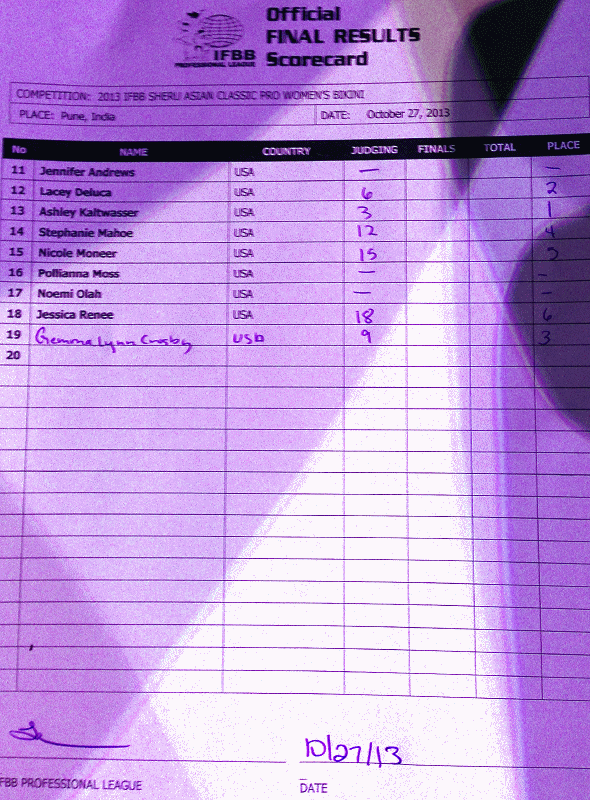 Official
FINAL RESULTS
Scorecard
IFBB
PROFESSIONAL LEAGUE
COMPETITION: 2013 IFBB SHERU ASIAN CLASSIC PRO WOMEN'S BIKINI
PLACE: Pune, India DATE: October 27, 2013
No NAME COUNTRY JUDGING FINALS TOTAL PLACE
11 Jennifer Andrews USA — —
12 Lacey Deluca USA 6 2
13 Ashley Kaltwasser USA 3 1
14 Stephanie Mahoe USA 12 4
15 Nicole Moneer USA 15 5
16 Pollianna Moss USA — –
17 Noemi Olah USA — –
18 Jessica Renee USA 18 6
19 GemmaLynn Crosby USA 9 3
20
10/27/13
FBB PROFESSIONAL LEAGUE DATE